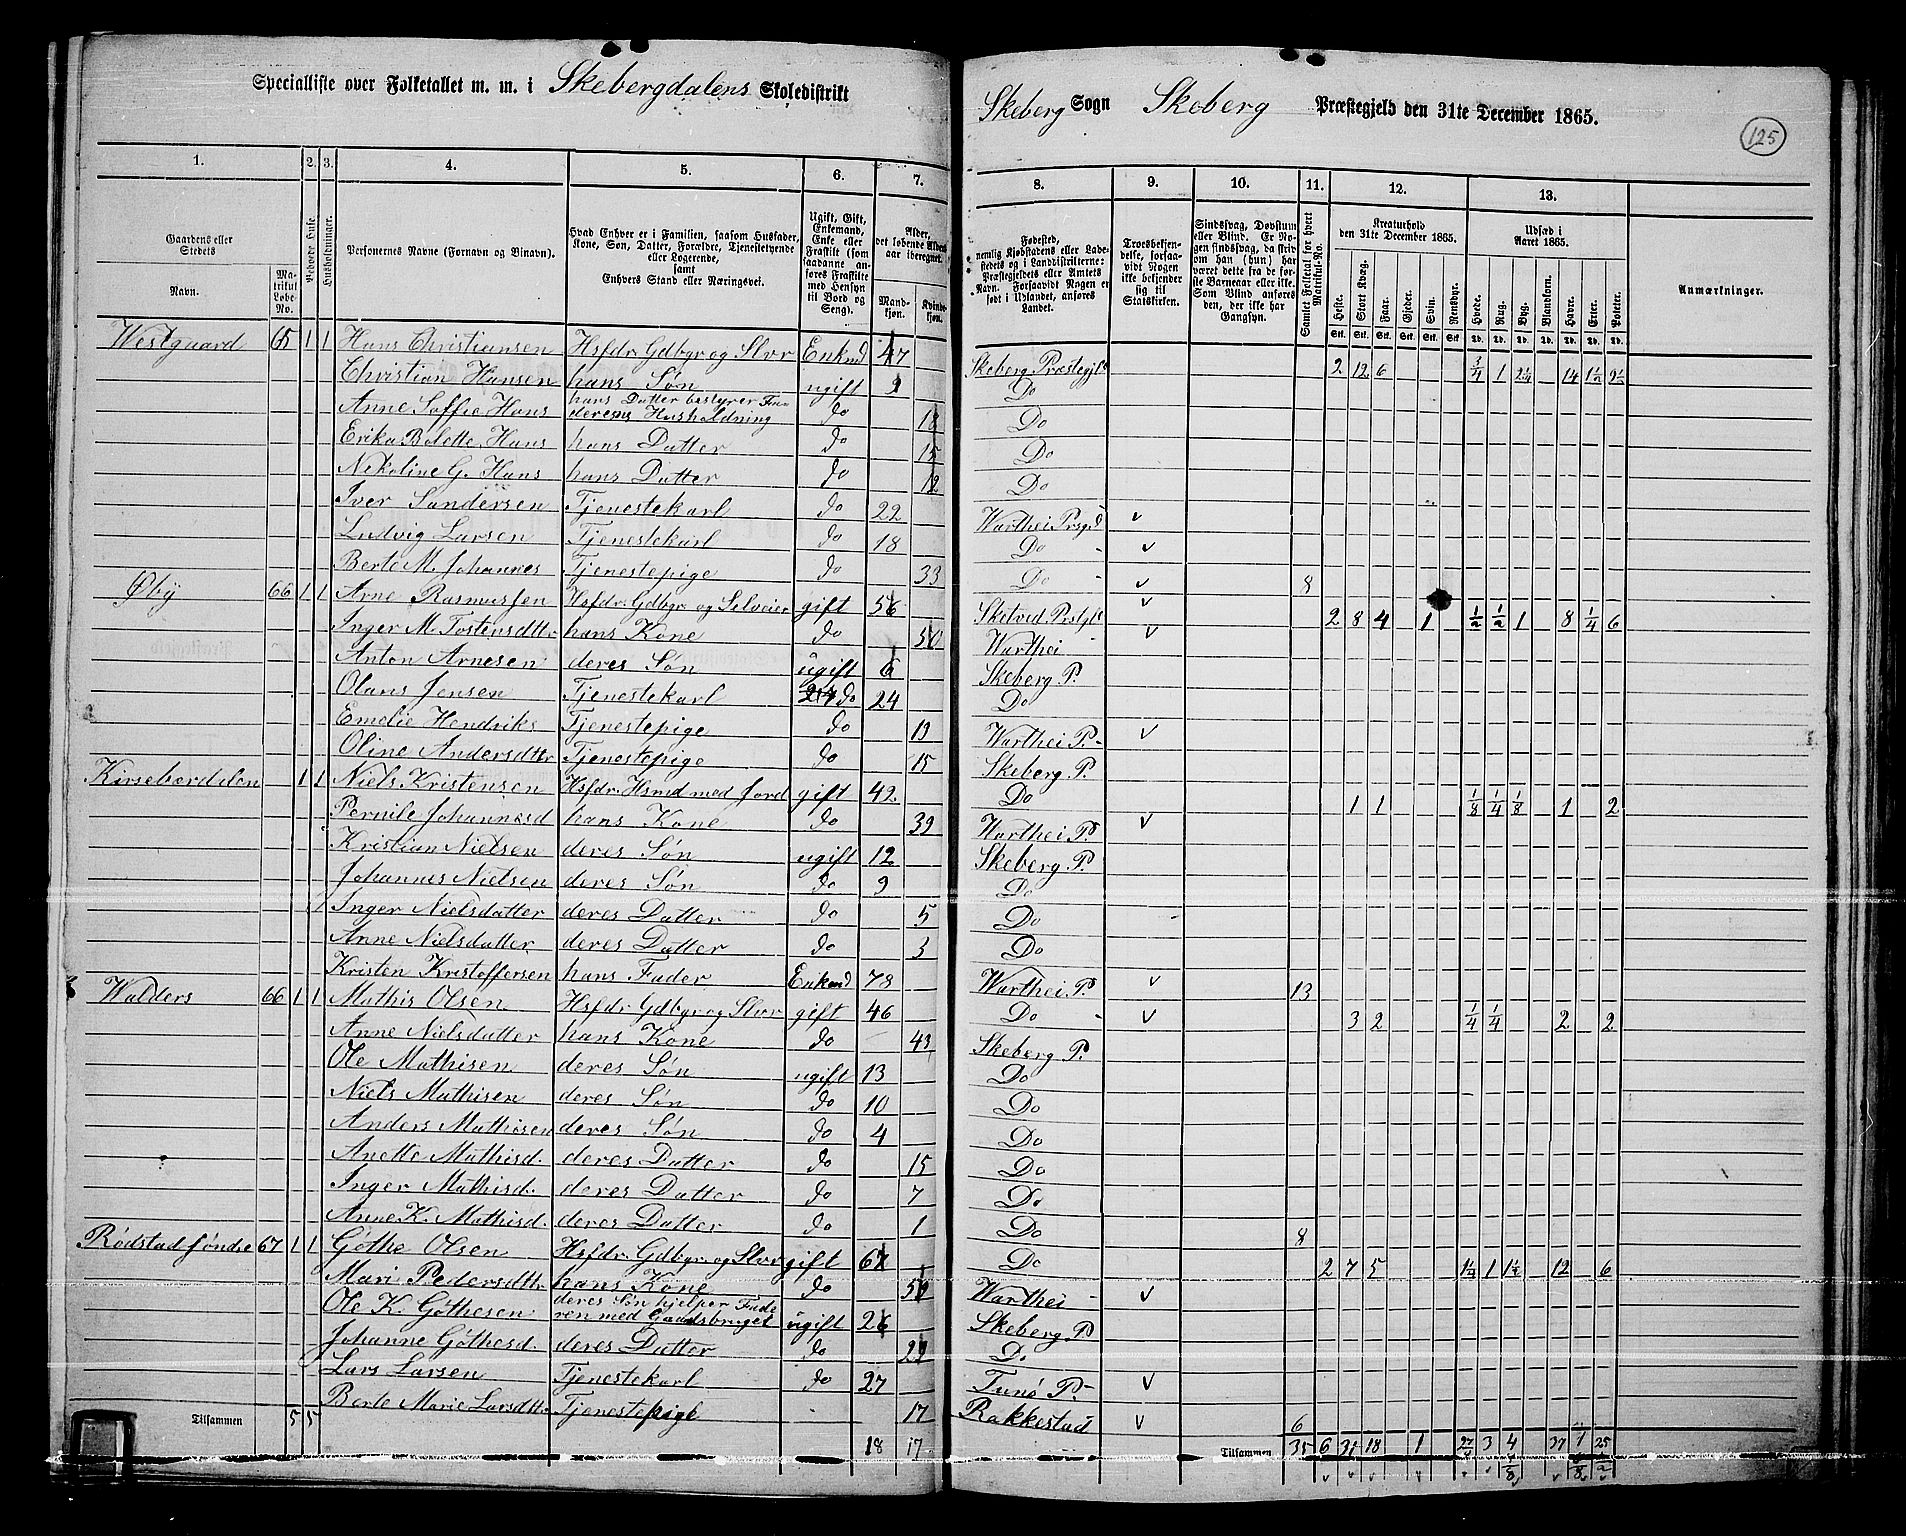 Specialliste over Folketallet m. m. i Skebergdalens Skoledistrikt
Skeberg Sogn Skeberg Præstegjeld den 31te December 1865.
125
1. 2. 3. 4. 5. 6. 7.
8. 9. 10. 11. 12. 13.
Gaardens eller Stedets
Navn.
Matrikul Løbe-No.
Beboede Huse.
Husholdninger.
Personernes Navne (Fornavn og Binavn).
Hvad Enhver er i Familien, saasom Husfader, Kone, Søn, Datter, Forældre, Tjenestetyende eller Logerende,
samt
Enhvers Stand eller Næringsvei.
Ugift, Gift, Enkemand, Enke eller Fraskilt (som saadanne anføres Fraskilte med Hensyn til Bord og Seng).
Alder, det løbende Aldersaar iberegnet.
Mandkjøn. Kvindekjøn.
Fødested, nemlig Kjøbstadens eller Ladestedets og i Landdistrikterne: Præstegjeldets eller Amtets Navn. Forsaavidt Nogen er født i Udlandet, anføres Landet.
Troesbekjendelse, forsaavidt Nogen ikke bekjender sig til Statskirken.
Sindssvag, Døvstum eller Blind. Er Nogen sindssvag, da skrives om han (hun) har været dette fra de første Barneaar eller ikke. Som Blind anføres den, der ikke har Gangsyn.
Samlet Folketal for hvert Matrikul-No.
Kreaturhold den 31te December 1865.
Heste. Stort Kvæg. Faar. Gjeder. Svin. Rensdyr.
Udsæd i Aaret 1865.
Hvede. Rug. Byg. Blandkorn. Havre. Erter. Poteter.
Anmærkninger.
Westgaard 65 1 1 Hans Christiansen Hsfdr. Gdbgr og Slvr Enkmd 47 Skeberg Præstegjld 2 12 6 3/4 1 2 1/4 14 1 1/2 9 1/2
Christian Hansen hans Søn ugift 9 Do
Anne Soffie Hans hans Datter bestyrer Faderens Husholdning do 18 Do
Erika Bolette Hans hans Datter do 15 Do
Nikoline G. Hans hans Datter do 12 Do
Iver Sandersen Tjenestekarl do 22 Warthei Prsgd
Ludvig Larsen Tjenestekarl do 18 Do
Berte M. Johannes Tjenestepige do 33 Do 8
Øby 66 1 1 Arne Rasmussen Hsfdr. Gdbgr. og Selveier gift 56 Sketved Prstgld 2 8 4 1 1/2 1/2 1 8 1/4 6
Inger M. Tostensdttr hans Kone do 50 Warthei
Anton Arnesen deres Søn ugift 6 Skeberg P.
Olans Jensen Tjenestekarl do 24 Do
Emelie Hendriks Tjenestepige do 13 Warthei P.
Oline Andersdttr Tjenestepige do 15 Skeberg P.
Kirsebærdalen 1 1 Niels Kristensen Hsfdr. Hsmd med Jord gift 42 Do 1 1 1/8 1/4 1/8 1 2
Pernile Johannesd hans Kone do 39 Warthei P.
Kristian Nielsen deres Søn ugift 12 Skeberg P.
Johannes Nielsen deres Søn do 9 Do
Inger Nielsdatter deres Datter do 5 Do
Anne Nielsdatter deres Datter do 3 Do
Kristen Kristoffersen hans Fader Enkmd 78 Warthei P. 13
Walders 66 1 1 Mathis Olsen Hsfdr. Gdbgr. og Slvr gift 46 Do 3 2 1/4 1/4 2 2
Anne Nielsdatter hans Kone do 43 Skeberg P.
Ole Mathisen deres Søn ugift 13 Do
Niels Mathisen deres Søn do 10 Do
Anders Mathisen deres Søn do 4 Do
Anette Mathisd. deres Datter do 15 Do
Inger Mathisd. deres Datter do 7 Do
Anne K. Mathisd. deres Datter do 1 Do 8
Rødstad søndre 67 1 1 Gøthe Olsen Hsfdr. Gdbgr. og Slvr gift 67 Do 2 7 5 1 1/4 1 1 1/2 12 6
Mari Pedersdttr hans Kone do 56 Warthei
Ole K. Gøthesen deres Søn hjelper Faderen med Gaardsbruget ugift 26 Skeberg P
Johanne Gøthesd. deres Datter do 22 Do
Lars Larsen Tjenestekarl do 27 Tunø P.
Berte Marie Larsdttr Tjenestepige 17 Rakkestad 6
Tilsammen 5 5 18 17
Tilsammen 35 6 31 18 1 3 37